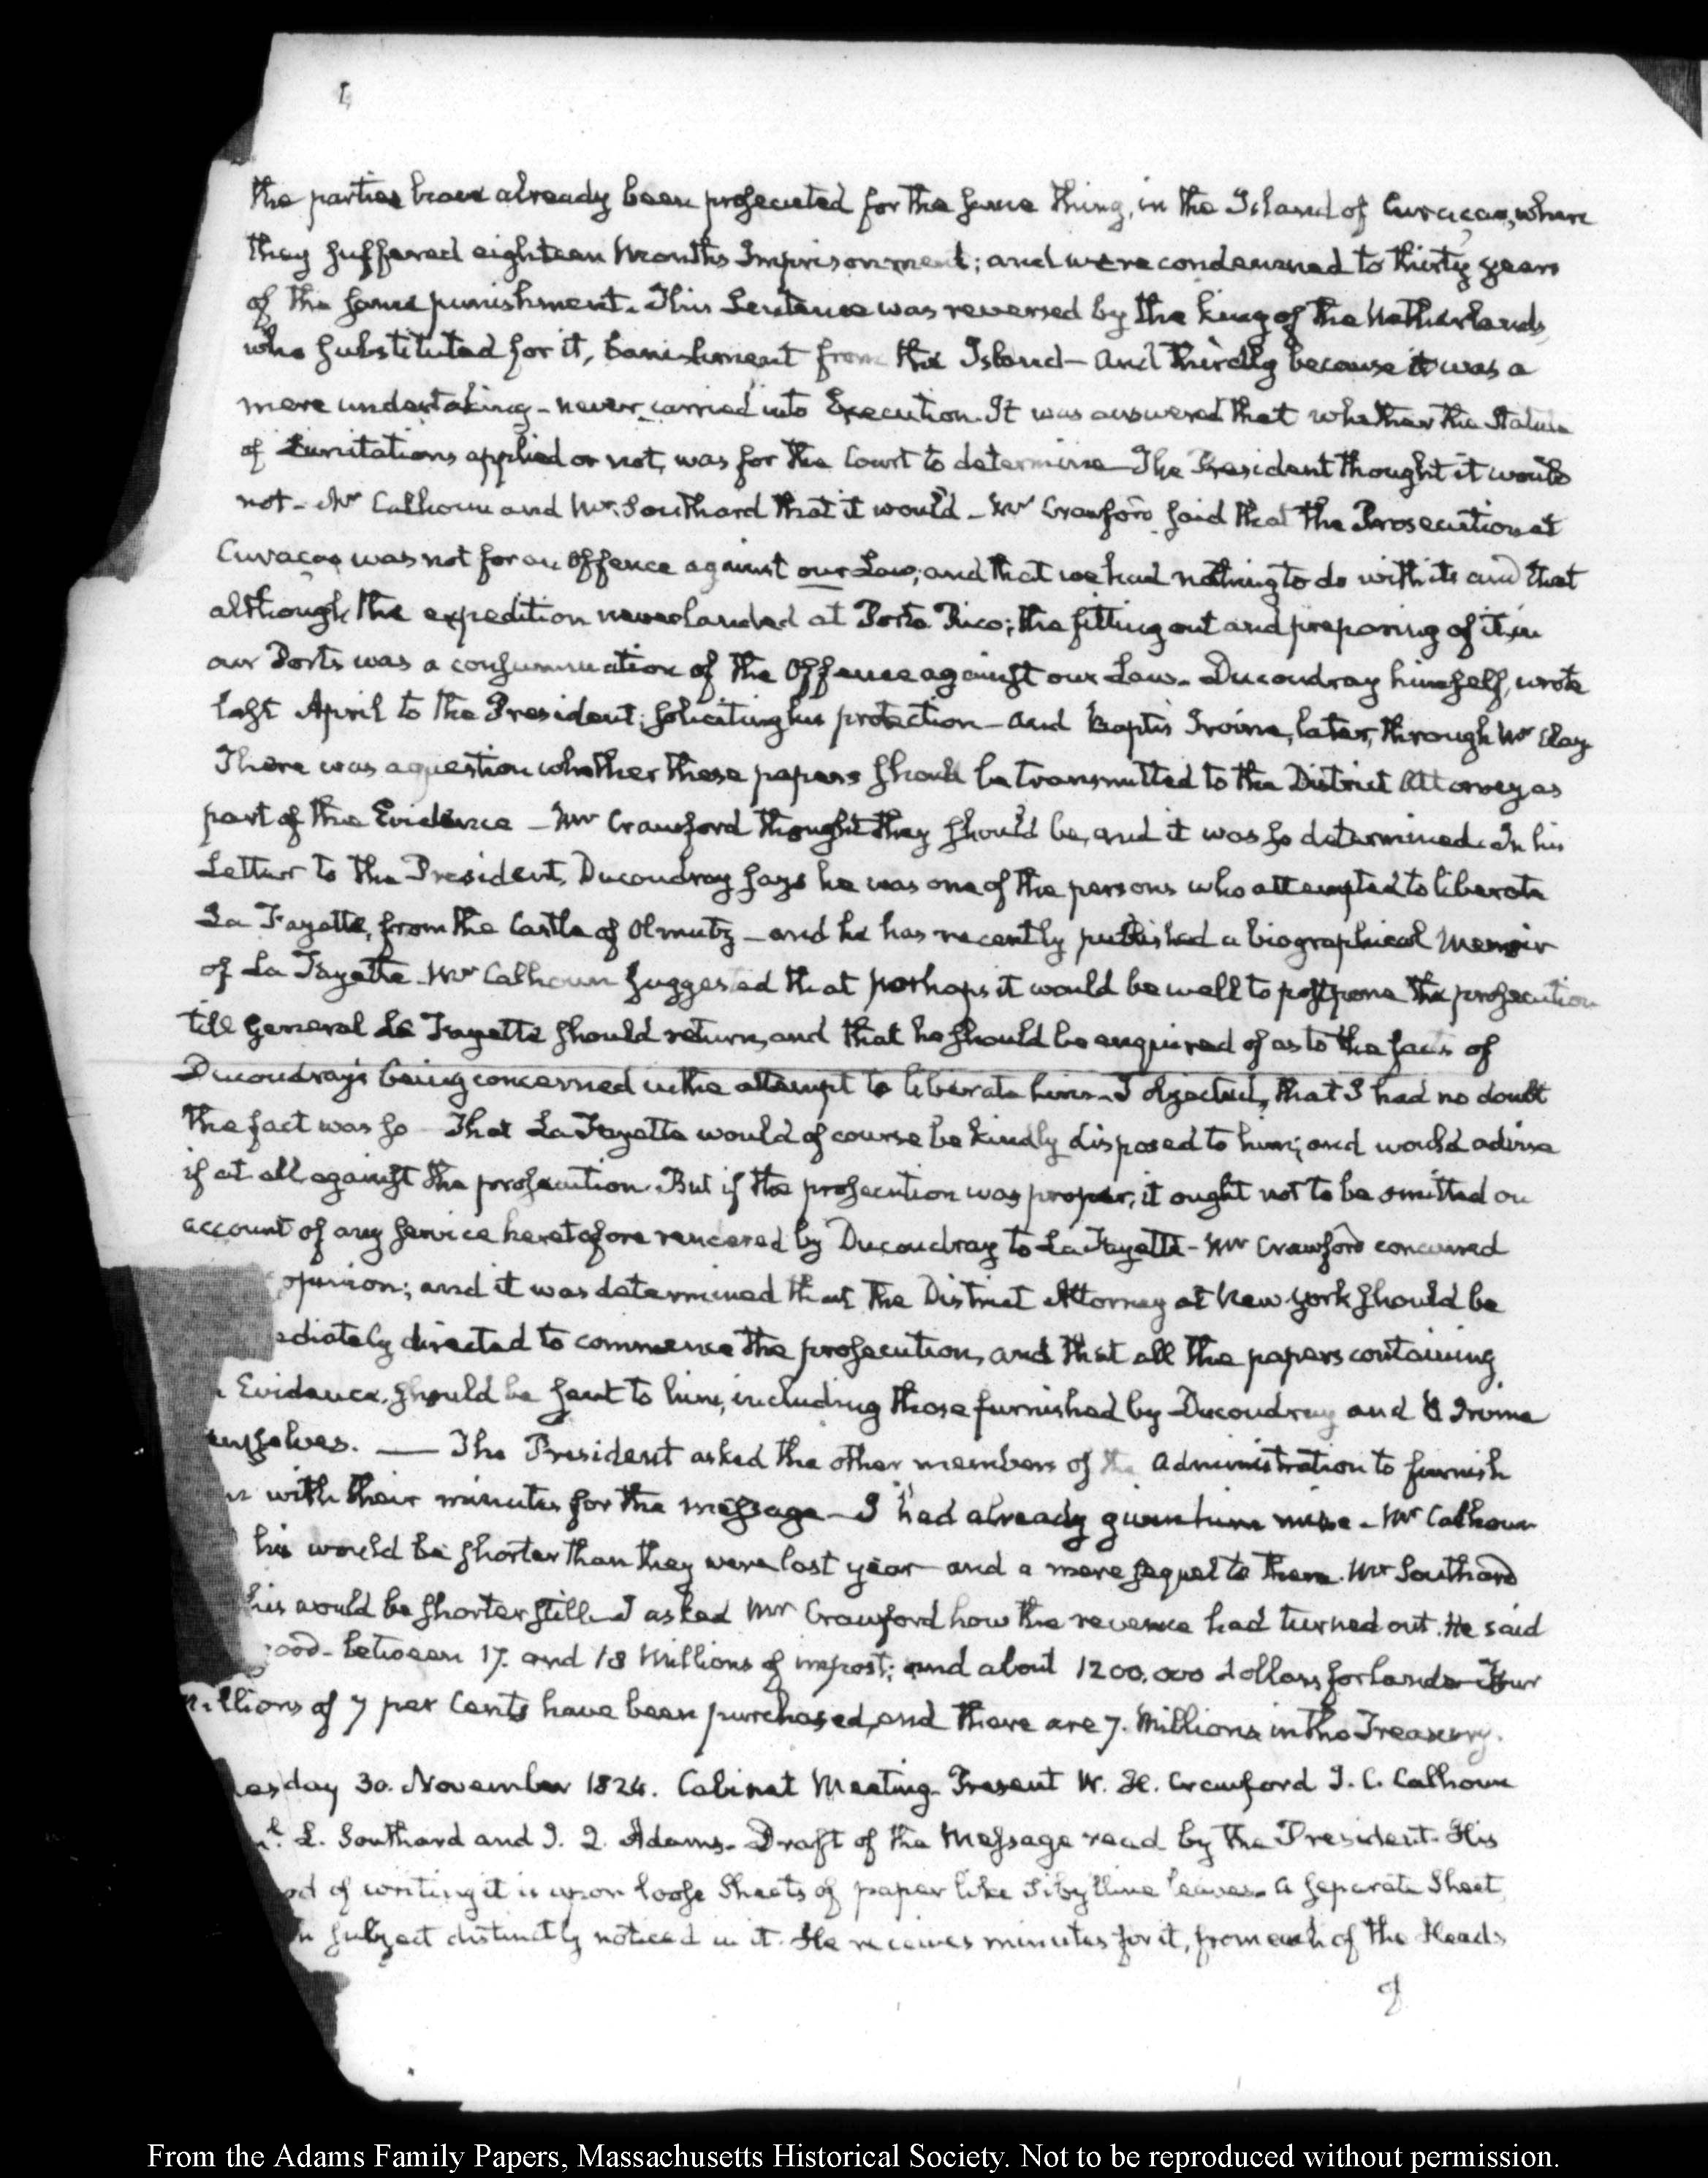 the parties have already been prosecuted for the same thing, in the Island of Curaçao, where
they suffered eighteen Months Imprisonment; and were condemned to thirty years
of the same punishment. This Sentence was reversed by the king of the Netherlands,
who substituted for it, banishment from the Island — and thirdly because it was a
mere undertaking — never carried into Execution. It was answered that whether the Statute
of Limitations applied or not, was for the Court to determine — The President thought it would
not — Mr Calhoun and Mr Southard that it would — Mr Crawford said that the Prosecution at
Curaçao was not for an Offence against our Law; and that we had nothing to do with it; and that
although the expedition never landed at Porto Rico; the fitting out and preparing of it, in
our Ports was a consummation of the Offence against our Law. Ducoudray himself, wrote
last April to the President; soliciting his protection — and Baptis Irvine, later, through Mr Clay
There was a question whether these papers should be transmitted to the District Attorney as
part of the Evidence — Mr Crawford thought they should be, and it was so determined. In his
Letter to the President, Ducoudray says he was one of the persons who attempted to liberate
La Fayette, from the Castle of Olmutz — and he has recently published a biographical Memoir
of La Fayette. Mr Calhoun suggested that perhaps it would be well to postpone the prosecution
till General La Fayette should return, and that he should be enquired of as to the fact of
Ducoudray's being concerned in the attempt to liberate him. I objected, that I had no doubt
the fact was so — That La Fayette would of course be kindly disposed to him; and would advise
if at all against the prosecution. But if the prosecution was proper, it ought not to be omitted on
account of any service heretofore rendered by Ducoudray to La Fayette — Mr Crawford concurred
opinion; and it was determined that the District Attorney at New York should be
ediately directed to commence the prosecution, and that all the papers containing
Evidence, should be sent to him, including those furnished by Ducoudray and B Irvine
emselves. — The President asked the other members of the Administration to furnish
with their minutes for the message — I had already given him mine — Mr Calhoun
his would be shorter than they were last year — and a mere sequel to them. Mr Southard
his would be shorter still — I asked Mr Crawford how the revenue had turned out. He said
good — between 17. and 18 Millions of impost; and about 1200.000 dollars for lands — Four
millions of 7 per Cents have been purchased, and there are 7. Millions in the Treasury.
esday 30. November 1824. Cabinet Meeting. Present W. H. Crawford J. C. Calhoun
l. L. Southard and J. Q. Adams. Draft of the Message read by the President. His
od of writing it is upon loose Sheets of paper like Sibylline leaves. A separate Sheet
h subject distinctly noticed in it. He receives minutes for it, from each of the Heads
of
From the Adams Family Papers, Massachusetts Historical Society. Not to be reproduced without permission.